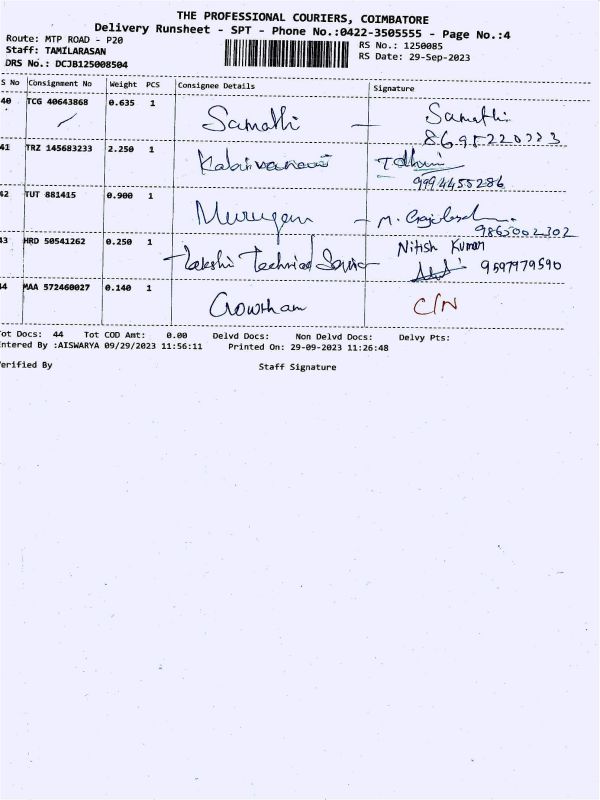 THE PROFESSIONAL COURIERS, COIMBATORE
Delivery Runsheet - SPT - Phone No.:0422-3505555 - Page No.:4
Route: MTP ROAD - P20
RS No.: 1250085
Staff: TAMILARASAN
RS Date: 29-Sep-2023
DRS No.: DCJB125008504
S No Consignment No Weight PCS Consignee Details Signature
40 TCG 40643868 0.635 1 Samathi — Samathi
8695220223
41 TRZ 145683233 2.250 1
9994455286
42 TUT 881415 0.900 1 Murugan — M.
9865002302
43 HRD 50541262 0.250 1 Technical Nitish Kumar
9597979590
44 MAA 572460027 0.140 1 Gowtham C/N
Tot Docs: 44 Tot COD Amt: 0.00 Delvd Docs: Non Delvd Docs: Delvy Pts:
Entered By :AISWARYA 09/29/2023 11:56:11 Printed On: 29-09-2023 11:26:48
Verified By Staff Signature